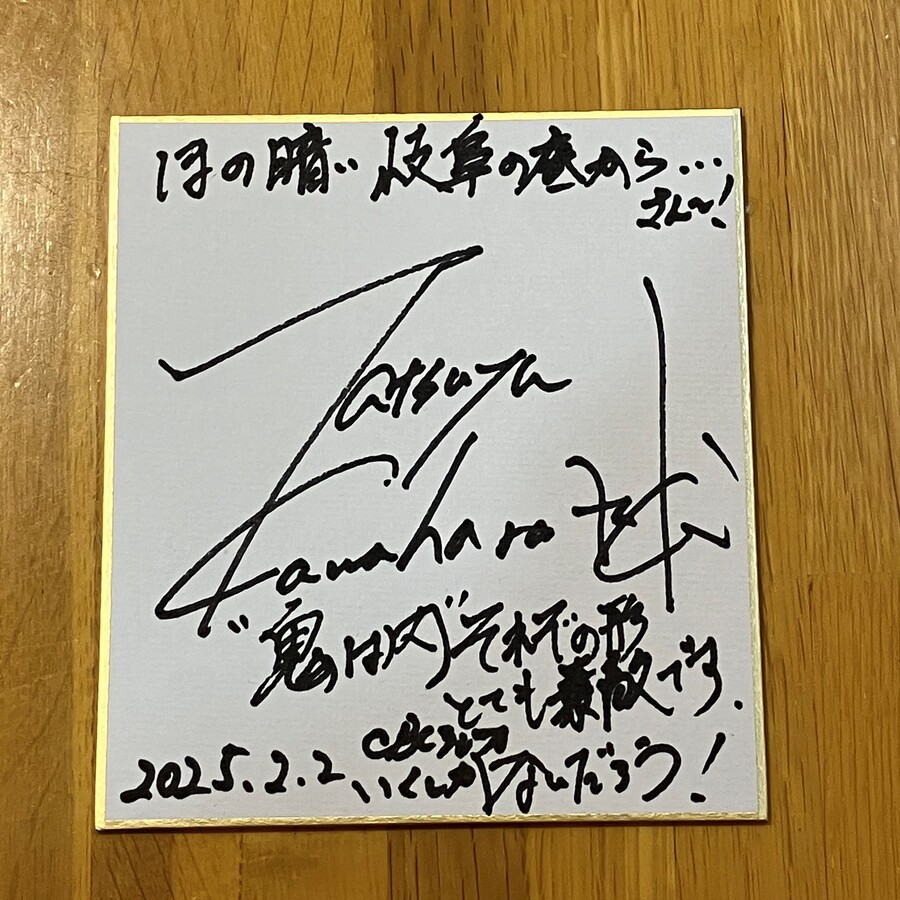 ほの暗い岐阜の巷から...
さん〜!
Tatsuya
Kawahara
"鬼は内"それぞれの形
とても素敵です.
CBCラジオ
2025.2.2 いくしかないだろう!